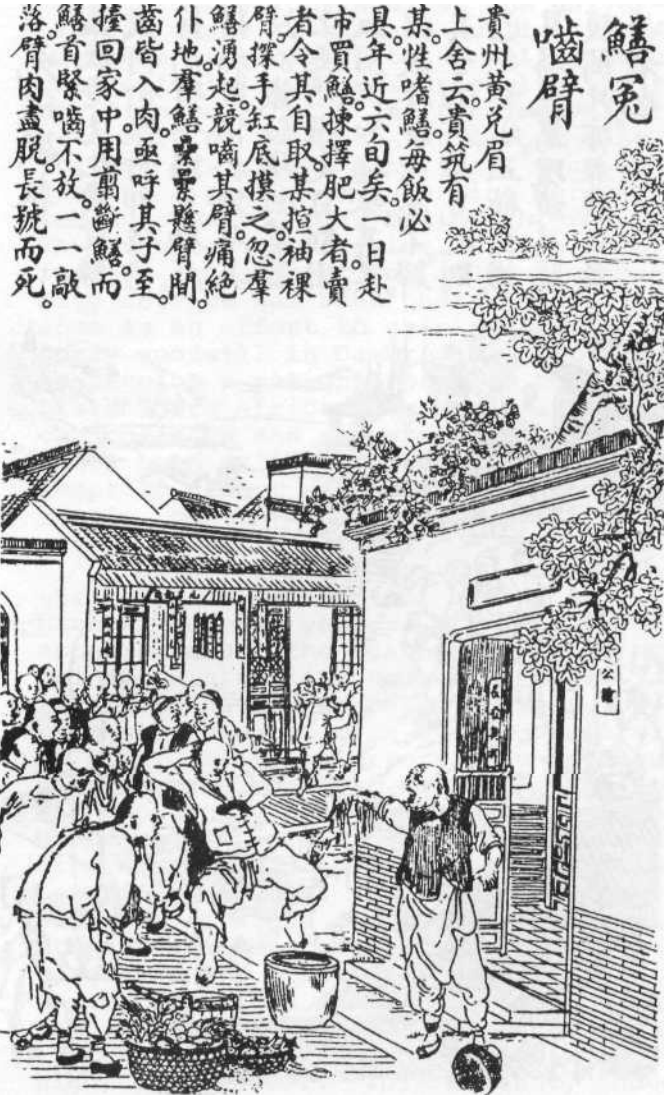 鱔冤
嚙臂
貴州黄兑眉
上舍云。貴筑有
某。性嗜鱔。每飯必
具。年近六旬矣。一日赴
市買鱔。揀擇肥大者。賣
者令其自取。某揎袖裸
臂。探手缸底摸之。忽羣
鱔湧起。競嚙其臂。痛絶
仆地。羣鱔纍纍懸臂間。
齒皆入肉。亟呼其子至。
擡回家中。用剪斷鱔。而
鱔首緊嚙不放。一一敲
落。臂肉盡脱。長號而死。
公館